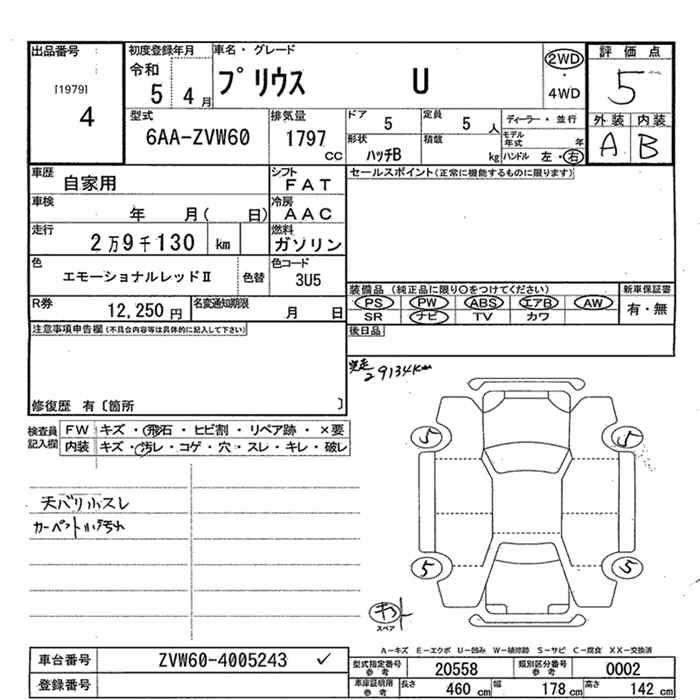 出品番号 初度登録年月 車名・グレード 評価点
[1979] 4 令和 5 4月 プリウス U 2WD・4WD 5
型式 排気量 ドア 5 定員 5人 ディーラー・並行 外装 内装
6AA-ZVW60 1797 CC 形状 ハッチB 積載 kg モデル年式 年 A B
ハンドル 左・右
車歴 自家用 シフト FAT セールスポイント(正常に機能するものに限ります)
車検 年 月( 日) 冷房 AAC
走行 2万9千130 km 燃料 ガソリン
色 エモーショナルレッドⅡ 色替 色コード 3U5
装備品 (純正品に限り〇をつけてください) 新車保証書
PS PW ABS エアB AW 有・無
R券 12,250円 名変通知期限 月 日 SR ナビ TV カワ
注意事項申告欄(不具合内容等は具体的に記入して下さい) 後日品
29134Km
修復歴 有〔箇所 〕
検査員記入欄 FW キズ・飛石・ヒビ割・リペア跡・×要
内装 キズ・汚レ・コゲ・穴・スレ・キレ・破レ
5 5
天バリ小スレ
カーペット小汚れ
5 5
スペア
A-キズ E-エクボ U-凹み W-補修跡 S-サビ C-腐食 XX-交換済
車台番号 ZVW60-4005243 ✓ 型式指定番号 参考 20558 類別区分番号 参考 0002
登録番号 車庫証明用 参考 長さ 460 cm 幅 178 cm 高さ 142 cm